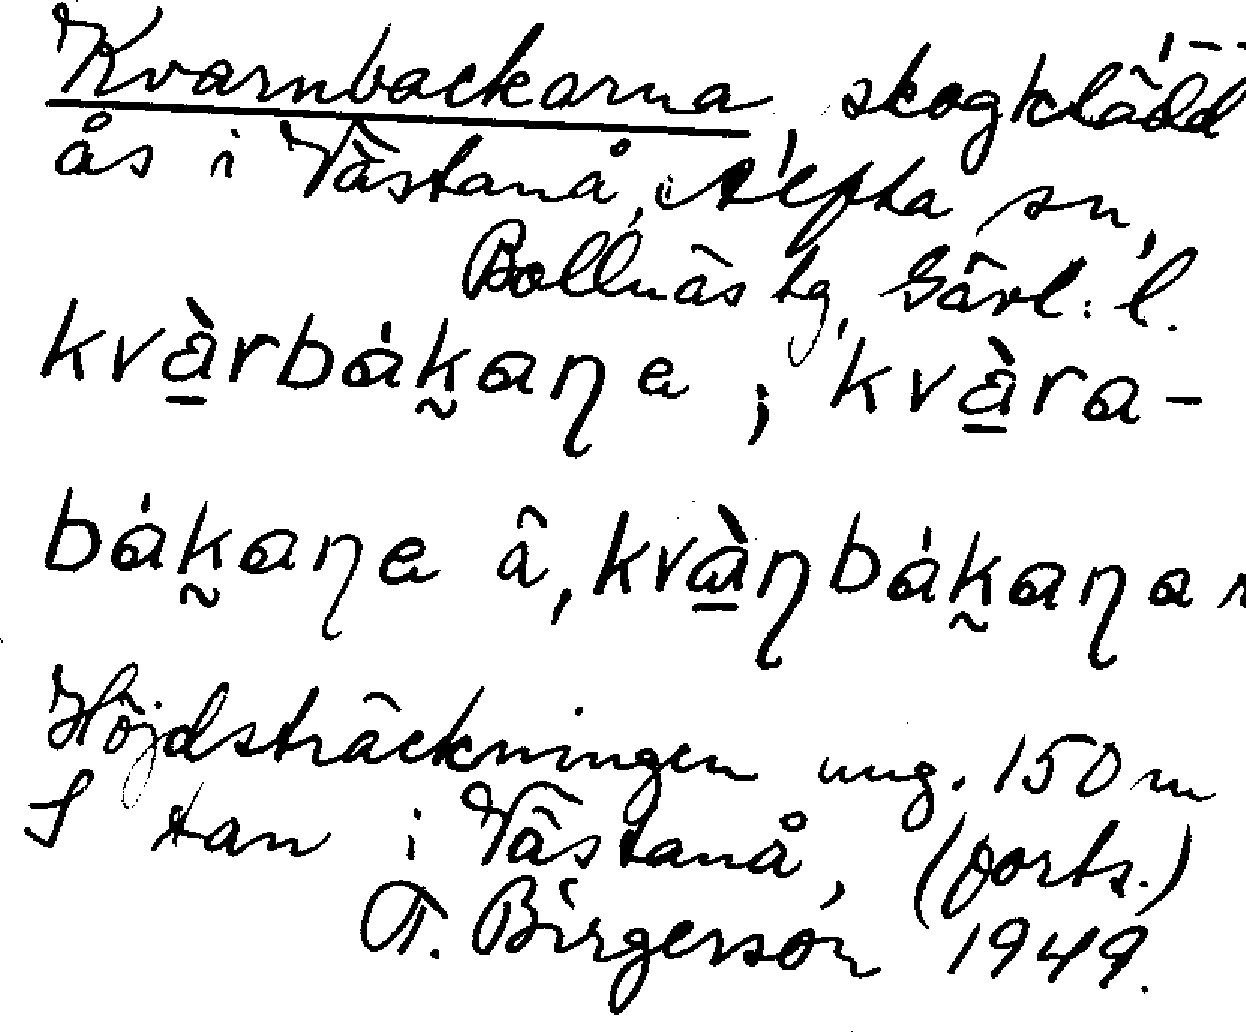 Kvarnbackarna, skogklädd
ås i Västanå, Alfta sn,
Bollnäs tg, Gävl: l.
kvàrbákaŋe, kvàra-
bákaŋe â, kvàŋbákaŋar
Höjdsträckningen ung. 150 m
S tan i Västanå, (forts.)
T. Birgerson 1949.